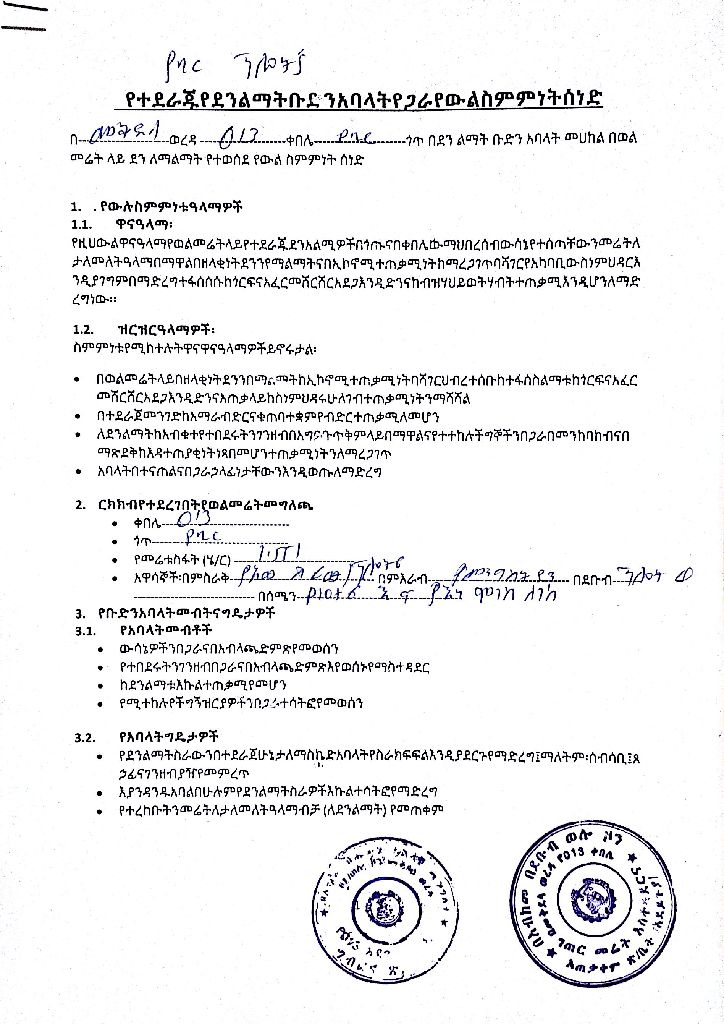 የተደራጁየደንልማትቡድንአባላትየጋራየውልስምምነትሰነድ
በ ወረዳ 013 ቀበሌ ጎጥ በደን ልማት ቡድን አባላት መሀከል በወል
መሬት ላይ ደን ለማልማት የተወሰደ የውል ስምምነት ሰነድ
1. .የውሉስምምነቱዓላማዎች
1.1. ዋናዓላማ፡
የዚህውልዋናዓላማየወልመሬትላይየተደራጁደንአልሚዎችበጎጡናበቀበሌውማህበረሰብውሳኔየተሰጣቸውንመሬትለ
ታለመለትዓላማበማዋልበዘላቂነትደንንየማልማትናበኢኮኖሚተጠቃሚነትከማረጋገጥባሻገርየአካባቢውስነምህዳርእ
ንዲያገግምበማድረግተፋሰሱከጎርፍናአፈርመሸርሸርአደጋእንዲድንናከብዝሃህይወትሃብትተጠቃሚእንዲሆንለማድ
ረግነው።
1.2. ዝርዝርዓላማዎች፡
ስምምነቱየሚከተሉትዋናዋናዓላማዎችይኖሩታል፡
• በወልመሬትላይበዘላቂነትደንንበማልማትከኢኮኖሚተጠቃሚነትባሻገርህብረተሰቡከተፋሰስልማቱከጎርፍናአፈር
መሸርሸርአደጋእንዲድንናአጠቃላይከስነምህዳሩሁለገብተጠቃሚነትንማሻሻል
• በተደራጀመንገድከአማራብድርናቁጠባተቋምየብድርተጠቃሚለመሆን
• ለደንልማትከአብቁተየተበደሩትንገንዘብበአግባቡጥቅምላይበማዋልናየተተከሉችግኞችንበጋራበመንከባከብናበ
ማጽደቅከእዳተጠያቂነትነጻበመሆንተጠቃሚነትንለማረጋገጥ
• አባላትበተናጠልናበጋራኃላፊነታቸውንእንዲወጡለማድረግ
2. ርክክብየተደረገበትየወልመሬትመግለጫ
• ቀበሌ 013
• ጎጥ
• የመሬቱስፋት (ሄ/ር)
• አዋሳኞች፡በምስራቅ በምእራብ በደቡብ
በሰሜን
3. የቡድንአባላትመብትናግዴታዎች
3.1. የአባላትመብቶች
• ውሳኔዎችንበጋራናበአብላጫድምጽየመወሰን
• የተበደሩትንገንዘብበጋራናበአብላጫድምጽእየወሰኑየማስተዳደር
• ከደንልማቱእኩልተጠቃሚየመሆን
• የሚተከሉየችግኝዝርያዎችንበጋራተሳትፎየመወሰን
3.2. የአባላትግዴታዎች
• የደንልማትስራውንበተደራጀሁኔታለማስኬድአባላትየስራክፍፍልእንዲያደርጉየማድረግ፤ማለትም፡ሰብሳቢ፤ጸ
ኃፊናገንዘብያዥየመምረጥ
• እያንዳንዱአባልበሁሉምየደንልማትስራዎችእኩልተሳትፎየማድረግ
• የተረከቡትንመሬትለታለመለትዓላማብቻ (ለደንልማት) የመጠቀም